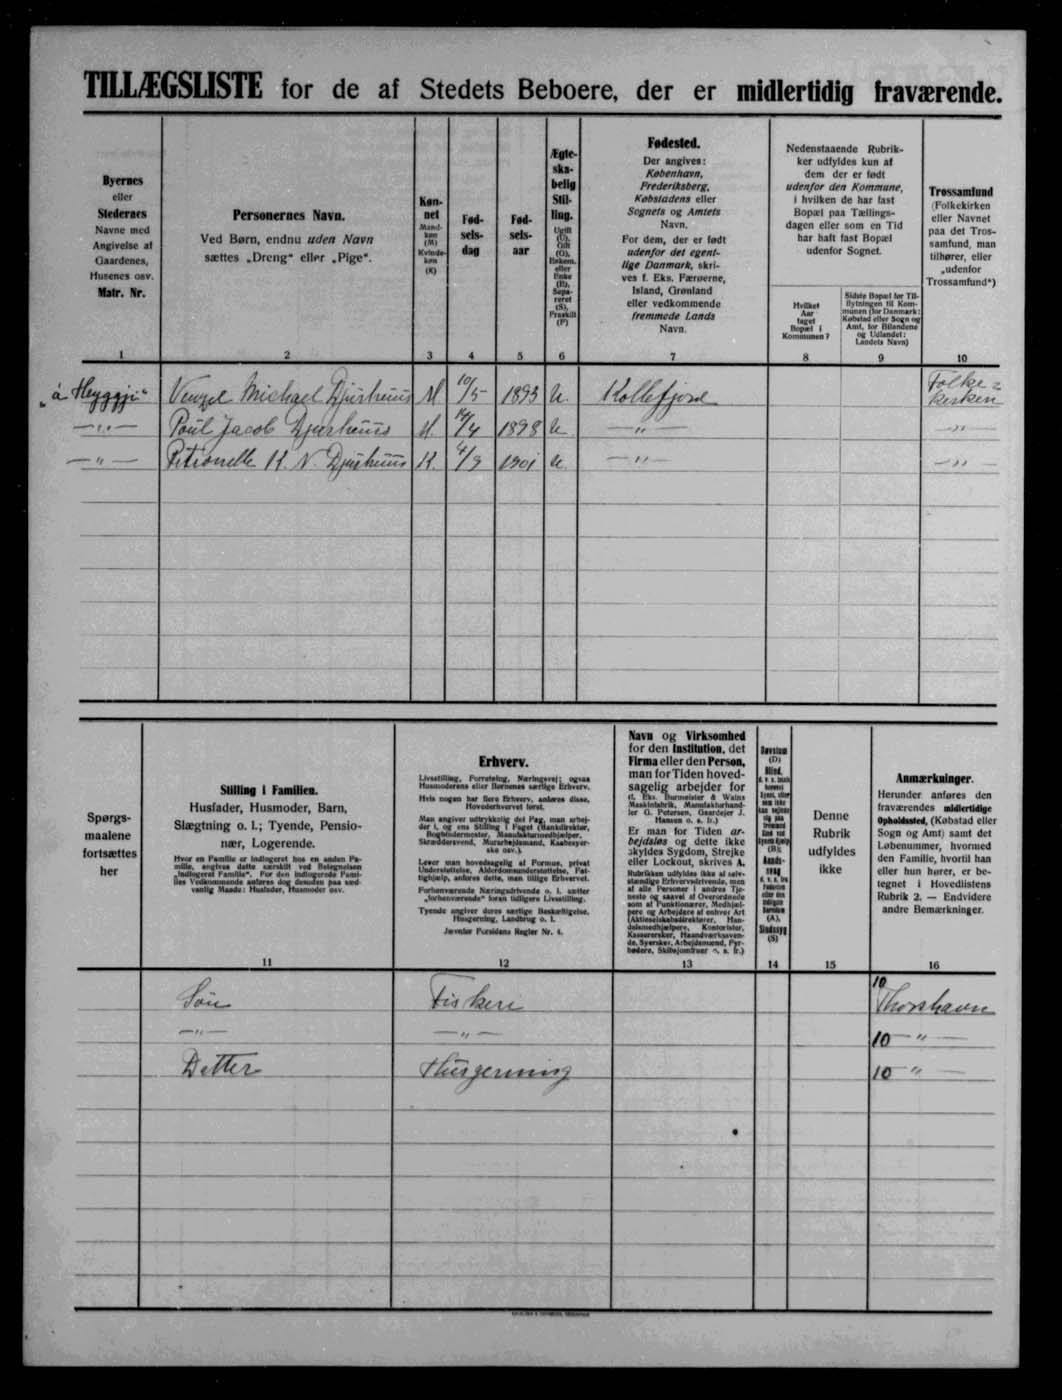 TILLÆGSLISTE for de af Stedets Beboere, der er midlertidig fraværende.
Byernes
eller
Stedernes
Navne med
Angivelse af
Gaardenes,
Husenes osv.
Matr. Nr.
1
Personernes Navn.
Ved Børn, endnu uden Navn
sættes „Dreng“ eller „Pige“.
2
Køn-
net
Mand-
køn
(M)
Kvinde-
køn
(K)
3
Fød-
sels-
dag
4
Fød-
sels-
aar
5
Ægte-
ska-
belig
Stil-
ling.
Ugift
(U),
Gift
(G),
Enkem.
eller
Enke
(E),
Sepa-
reret
(S),
Fraskilt
(F)
6
Fødested.
Der angives:
København,
Frederiksberg,
Købstadens eller
Sognets og Amtets
Navn.
For dem, der er født
udenfor det egent-
lige Danmark, skri-
ves f. Eks. Færøerne,
Island, Grønland
eller vedkommende
fremmede Lands
Navn.
7
Nedenstaaende Rubrik-
ker udfyldes kun af
dem der er født
udenfor den Kommune,
i hvilken de har fast
Bopæl paa Tællings-
dagen eller som en Tid
har haft fast Bopæl
udenfor Sognet.
Hvilket
Aar
taget
Bopæl i
Kommunen?
8
Sidste Bopæl før Til-
flytningen til Kom-
munen (for Danmark:
Købstad eller Sogn og
Amt, for Bilandene
og Udlandet:
Landets Navn)
9
Trossamfund
(Folkekirken
eller Navnet
paa det Tros-
samfund, man
tilhører, eller
„udenfor
Trossamfund“)
10
„á Heyggji“ Venzel Michael Djurhuus M 10/5 1893 U. Kollefjord Folke=kirken
—„— Poul Jacob Djurhuus M. 14/4 1898 U —„— —„—
—„— Petronelle K. N. Djurhuus K. 4/9 1901 U. —„— —„—
Spørgs-
maalene
fortsættes
her
Stilling i Familien.
Husfader, Husmoder, Barn,
Slægtning o. l.; Tyende, Pensio-
nær, Logerende.
Hvor en Familie er indlogeret hos en anden Fa-
milie, angives dette særskilt ved Betegnelsen
„indlogeret Familie“. For den indlogerede Fami-
lies Vedkommende anføres dog desuden paa sæd-
vanlig Maade: Husfader, Husmoder osv.
11
Erhverv.
Livsstilling, Forretning, Næringsvej; ogsaa
Husmoderens eller Børnenes særlige Erhverv.
Hvis nogen har flere Erhverv, anføres disse,
Hovederhvervet først.
Man angiver udtrykkelig det Fag, man arbej-
der i, og ens Stilling i Faget (Bankdirektør,
Bogbindermester, Manufakturmedhjælper,
Skræddersvend, Murarbejdsmand, Kaabesyer-
ske osv.).
Lever man hovedsagelig af Formue, privat
Understøttelse, Alderdomsunderstøttelse, Fat-
tighjælp, anføres dette, men tillige Erhvervet.
Forhenværende Næringsdrivende o. l. sætter
„forhenværende“ foran tidligere Livsstilling.
Tyende angiver deres særlige Beskæftigelse,
Husgerning, Landbrug o. l.
Jævnfør Forsidens Regler Nr. 4.
12
Navn og Virksomhed
for den Institution, det
Firma eller den Person,
man for Tiden hoved-
sagelig arbejder for
(f. Eks. Burmeister & Wains
Maskinfabrik, Manufakturhand-
ler G. Petersen, Gaardejer J.
Hansen o. s. fr.)
Er man for Tiden ar-
bejdsløs og dette ikke
skyldes Sygdom, Strejke
eller Lockout, skrives A.
Rubrikken udfyldes ikke af selv-
stændige Erhvervsdrivende, men
af alle Personer i andres Tje-
neste og saavel af Overordnede
som af Funktionærer, Medhjæl-
pere og Arbejdere af enhver Art
(Aktieselskabsdirektører, Han-
delsmedhjælpere, Kontorister,
Kasserersker, Haandværkssven-
de, Syersker, Arbejdsmænd, Fyr-
bødere, Skibsjomfruer o. s. fr.)
13
Døvstum
(D)
Blind,
(B);
Aands-
svag
(A),
Sindssyg
(S)
14
Denne
Rubrik
udfyldes
ikke
15
Anmærkninger.
Herunder anføres den
fraværendes midlertidige
Opholdssted, (Købstad eller
Sogn og Amt) samt det
Løbenummer, hvormed
den Familie, hvortil han
eller hun hører, er be-
tegnet i Hovedlistens
Rubrik 2. — Endvidere
andre Bemærkninger.
16
Søn Fiskeri 10 Thorshavn
—„— —„— 10 —„—
Datter Husgerning 10 „ —